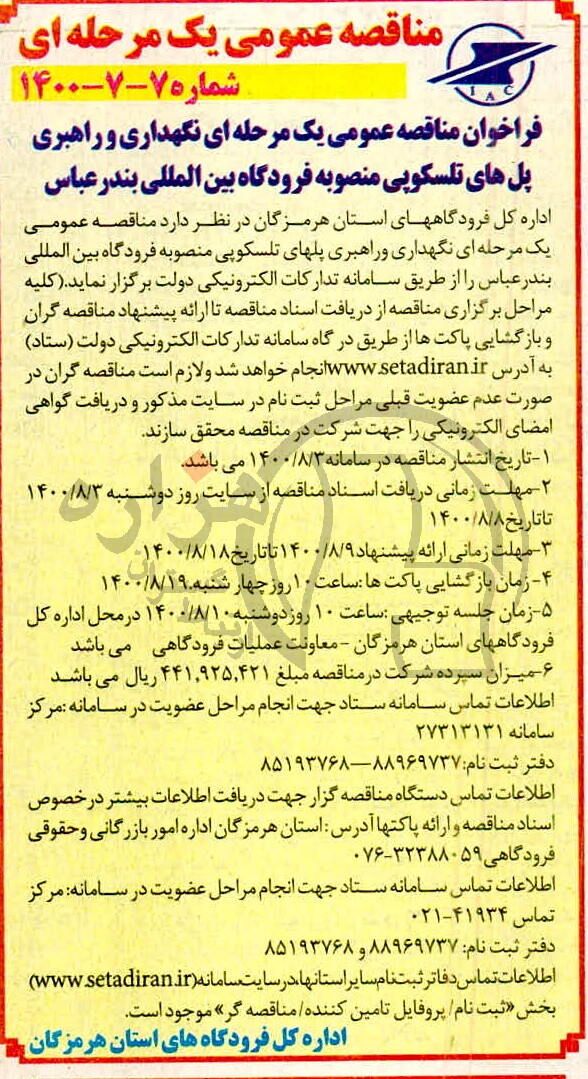 مناقصه عمومی یک مرحله ای
شماره ۷-۷-۱۴۰۰
IAC
فراخوان مناقصه عمومی یک مرحله ای نگهداری و راهبری
پل های تلسکوپی منصوبه فرودگاه بین المللی بندرعباس
اداره کل فرودگاههای استان هرمزگان در نظر دارد مناقصه عمومی
یک مرحله ای نگهداری وراهبری پلهای تلسکوپی منصوبه فرودگاه بین المللی
بندرعباس را از طریق سامانه تدارکات الکترونیکی دولت برگزار نماید.(کلیه
مراحل برگزاری مناقصه از دریافت اسناد مناقصه تا ارائه پیشنهاد مناقصه گران
و بازگشایی پاکت ها از طریق در گاه سامانه تدارکات الکترونیکی دولت (ستاد)
به آدرس www.setadiran.ir انجام خواهد شد ولازم است مناقصه گران در
صورت عدم عضویت قبلی مراحل ثبت نام در سایت مذکور و دریافت گواهی
امضای الکترونیکی را جهت شرکت در مناقصه محقق سازند.
۱-تاریخ انتشار مناقصه در سامانه ۱۴۰۰/۸/۳ می باشد.
۲-مهلت زمانی دریافت اسناد مناقصه از سایت روز دوشنبه ۱۴۰۰/۸/۳
تاتاریخ ۱۴۰۰/۸/۸
۳-مهلت زمانی ارائه پیشنهاد ۱۴۰۰/۸/۹ تاتاریخ ۱۴۰۰/۸/۱۸
۴- زمان بازگشایی پاکت ها :ساعت ۱۰ روز چهار شنبه ۱۴۰۰/۸/۱۹.
۵-زمان جلسه توجیهی :ساعت ۱۰ روز دوشنبه ۱۴۰۰/۸/۱۰ درمحل اداره کل
فرودگاههای استان هرمزگان -معاونت عملیات فرودگاهی می باشد
۶-میزان سپرده شرکت در مناقصه مبلغ ۴۴۱,۹۲۵,۴۲۱ ریال می باشد
اطلاعات تماس سامانه ستاد جهت انجام مراحل عضویت در سامانه :مرکز
سامانه ۲۷۳۱۳۱۳۱
دفتر ثبت نام: ۸۸۹۶۹۷۳۷—۸۵۱۹۳۷۶۸
اطلاعات تماس دستگاه مناقصه گزار جهت دریافت اطلاعات بیشتر در خصوص
اسناد مناقصه و ارائه پاکتها آدرس : استان هرمزگان اداره امور بازرگانی وحقوقی
فرودگاهی ۳۲۳۸۸۰۵۹-۰۷۶
اطلاعات تماس سامانه ستاد جهت انجام مراحل عضویت در سامانه: مرکز
تماس ۴۱۹۳۴-۰۲۱
دفتر ثبت نام: ۸۸۹۶۹۷۳۷ و ۸۵۱۹۳۷۶۸
اطلاعات تماس دفاتر ثبت نام سایر استانها، در سایت سامانه (www.setadiran.ir)
بخش «ثبت نام/ پروفایل تامین کننده/ مناقصه گر» موجود است.
اداره کل فرودگاه های استان هرمزگان
هزاره